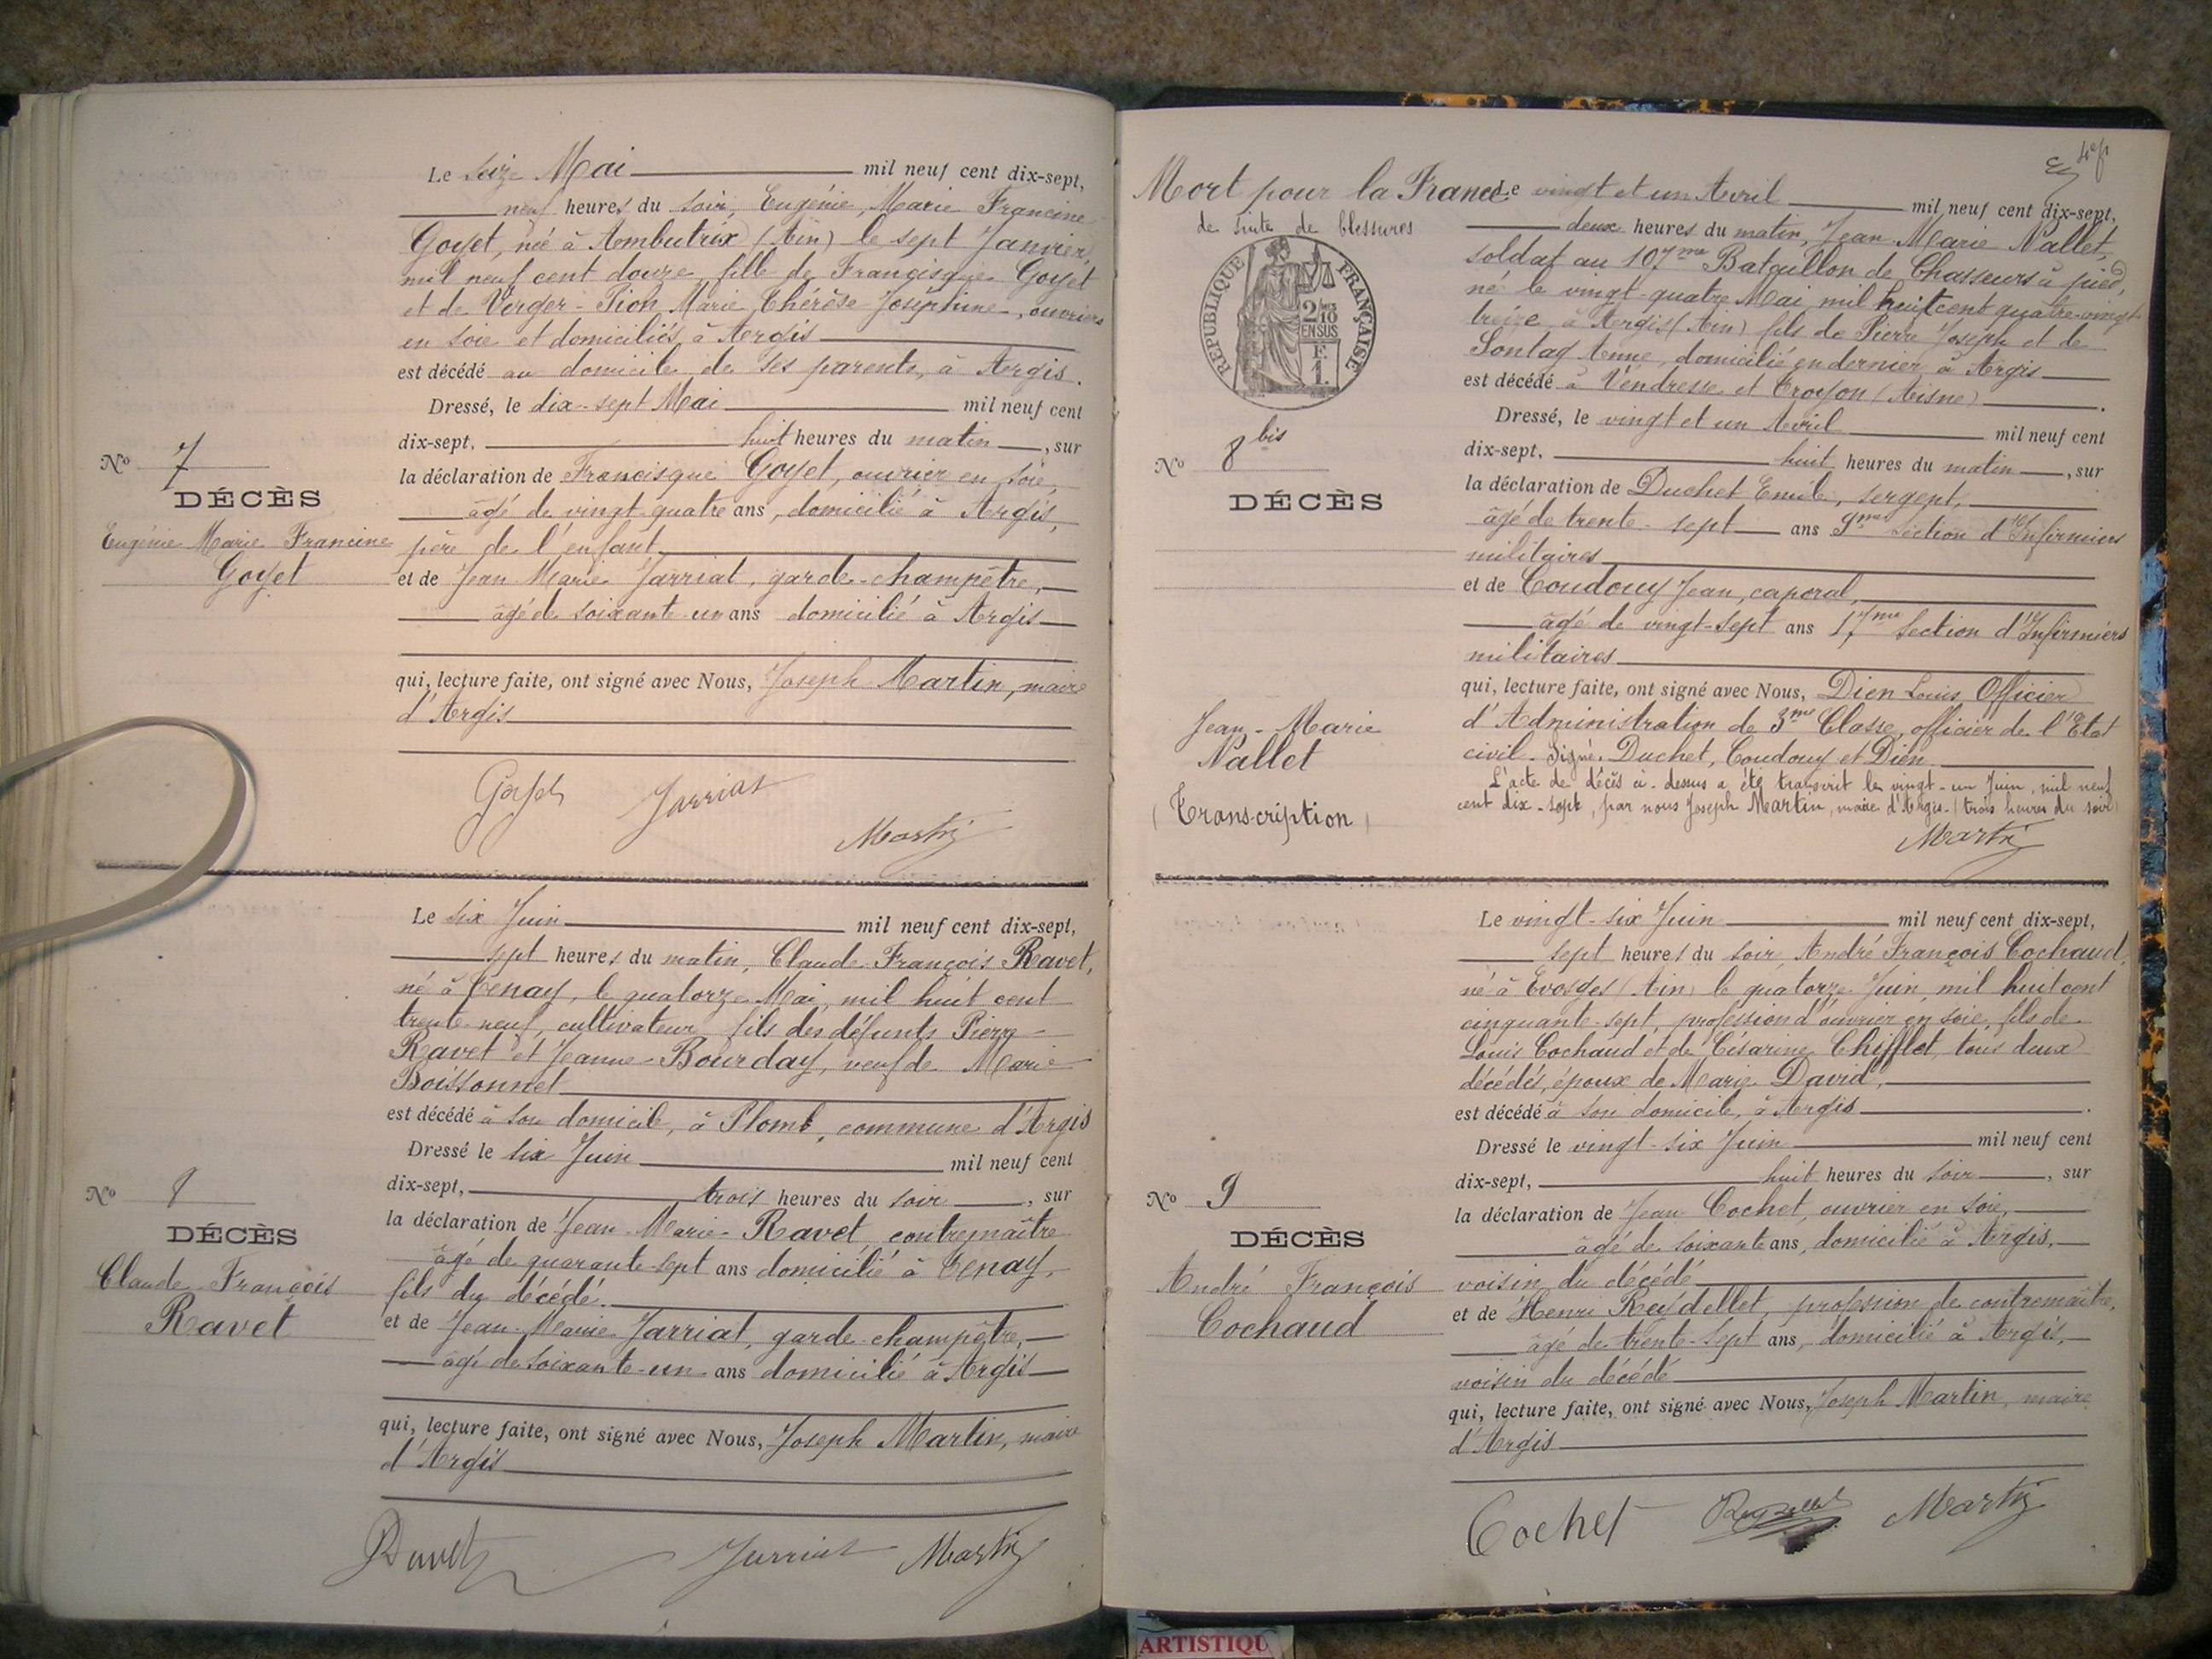 Le seize Mai mil neuf cent dix-sept,
neuf heures du soir, Eugénie, Marie Francine
Goyet, née à Ambutrix (Ain) le sept Janvier,
mil neuf cent douze, fille de Francisque Goyet
et de Verger-Pion Marie Thérèse Joséphine, ouvriers
en soie et domiciliés à Argis
est décédé au domicile de ses parents, à Argis.
Dressé, le dix-sept Mai mil neuf cent
dix-sept, huit heures du matin, sur
la déclaration de Francisque Goyet, ouvrier en soie,
âgé de vingt quatre ans, domicilié à Argis,
père de l'enfant
et de Jean Marie Jarriat, garde-champêtre,
âgé de soixante-un ans domicilié à Argis
qui, lecture faite, ont signé avec Nous, Joseph Martin, maire
d'Argis
Nº 7
DÉCÈS
Eugénie Marie Francine
Goyet
Goyet Jarriat
Martin
Le six Juin mil neuf cent dix-sept,
sept heures du matin, Claude François Ravet,
né à Tenay, le quatorze Mai, mil huit cent
trente-neuf, cultivateur, fils des défunts Pierre
Ravet et Jeanne Bourday, veuf de Marie
Boissonnet
est décédé à son domicile, à Plomb, commune d'Argis
Dressé le six Juin mil neuf cent
dix-sept, trois heures du soir, sur
la déclaration de Jean-Marie Ravet contremaître
âgé de quarante-sept ans domicilié à Tenay,
fils du décédé.
et de Jean-Marie Jarriat, garde-champêtre,
âgé de soixante-un ans domicilié à Argis
qui, lecture faite, ont signé avec Nous, Joseph Martin, maire
d'Argis
Nº 8
DÉCÈS
Claude François
Ravet
Ravet Jarriat Martin
Mort pour la France
de suite de blessures
RÉPUBLIQUE FRANÇAISE
2/10
EN SUS
F.
1.
Le vingt et un Avril mil neuf cent dix-sept,
deux heures du matin, Jean Marie Nallet,
soldat au 107me Bataillon de Chasseurs à pied,
né le vingt-quatre Mai mil huit cent quatre-vingt
treize à Argis (Ain) fils de Pierre Joseph et de
Sontag Anne, domicilié en dernier à Argis
est décédé à Vendresse et Troyon (Aisne).
Dressé, le vingt et un Avril mil neuf cent
dix-sept, huit heures du matin, sur
la déclaration de Duchet Emile, sergent,
âgé de trente-sept ans 9me Section d'Infirmiers
militaires
et de Coudouy Jean, caporal,
âgé de vingt-sept ans 17me Section d'Infirmiers
militaires
qui, lecture faite, ont signé avec Nous, Dien Louis Officier
d'Administration de 3me Classe, officier de l'Etat
civil. Signé: Duchet, Coudouy et Dien.
L'acte de décès ci-dessus a été transcrit le vingt-un Juin, mil neuf
cent dix-sept, par nous Joseph Martin, maire d'Argis. (trois heures du soir)
Martin
Nº 8 bis
DÉCÈS
Jean-Marie
Nallet
(Transcription)
Le vingt-six Juin mil neuf cent dix-sept,
sept heures du soir, André François Cochaud,
né à Evosges (Ain) le quatorze Juin, mil huit cent
cinquante-sept, profession d'ouvrier en soie, fils de
Louis Cochaud et de Césarine Chifflet, tous deux
décédés, époux de Marie David,
est décédé à son domicile, à Argis.
Dressé le vingt-six Juin mil neuf cent
dix-sept, huit heures du soir, sur
la déclaration de Jean Cochet, ouvrier en soie,
âgé de soixante ans, domicilié à Argis,
voisin du décédé
et de Henri Reydellet, profession de contremaître,
âgé de trente-sept ans, domicilié à Argis,
voisin du décédé
qui, lecture faite, ont signé avec Nous, Joseph Martin, maire
d'Argis
Nº 9
DÉCÈS
André François
Cochaud
Cochet Reydellet Martin
ARTISTIQU